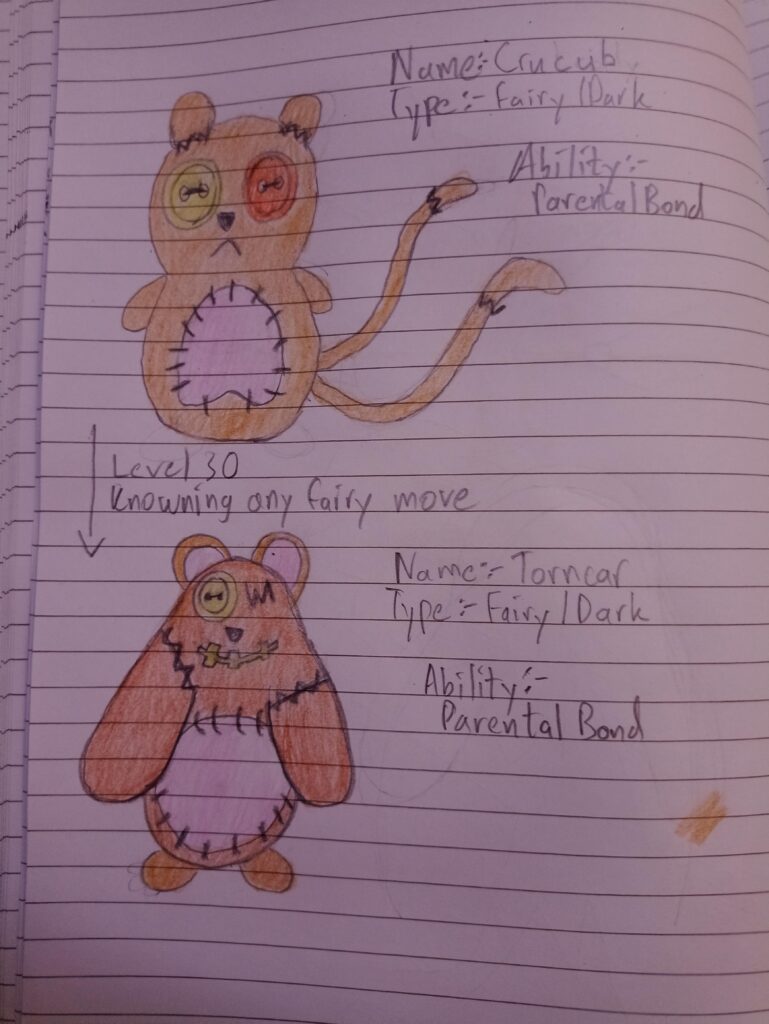 Name:- Crucyb
Type:- Fairy/Dark
Ability:-
Parental Bond
Level 30
Knowning any fairy move
Name:- Torncar
Type:- Fairy/Dark
Ability:-
Parental Bond